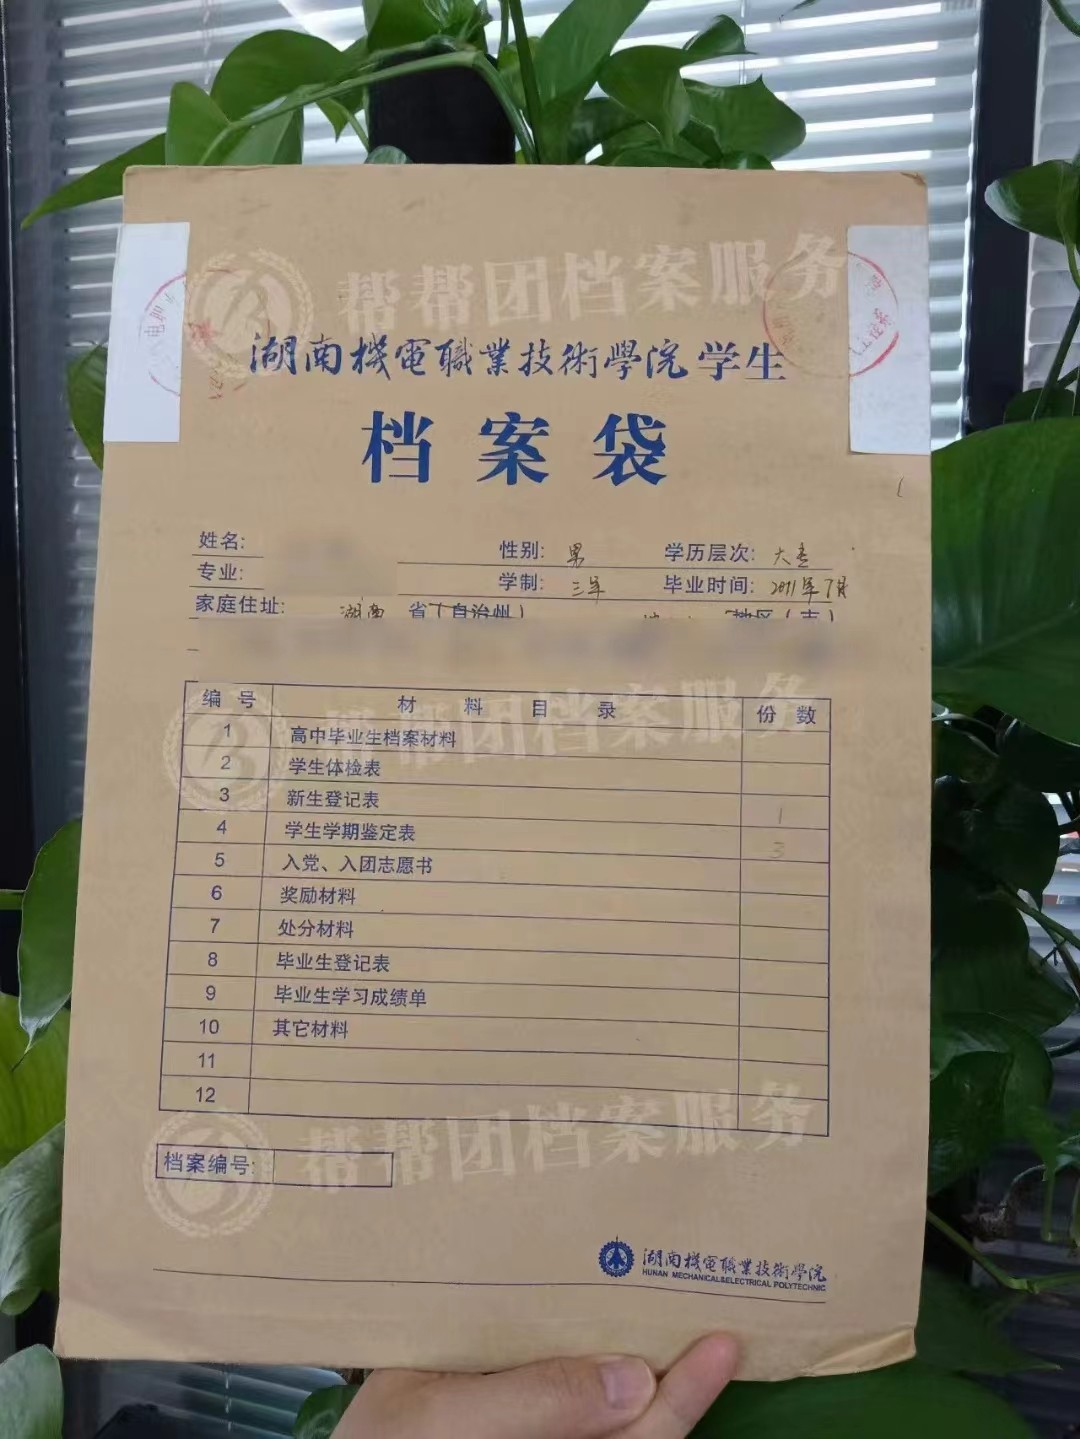 帮帮团档案服务
湖南機電職業技術學院学生
档案袋
姓名:
性别: 男 学历层次: 大专
专业:
学制: 三年 毕业时间: 2011年7月
家庭住址: 湖南 省(自治州) 地区(市)
编号 材料目录 份数
1 高中毕业生档案材料
帮帮团档案服务
2 学生体检表
3 新生登记表 1
4 学生学期鉴定表 3
5 入党、入团志愿书
6 奖励材料
7 处分材料
8 毕业生登记表
9 毕业生学习成绩单
10 其它材料
11
12
帮帮团档案服务
档案编号:
湖南機電職業技術學院
HUNAN MECHANICAL&ELECTRICAL POLYTECHNIC